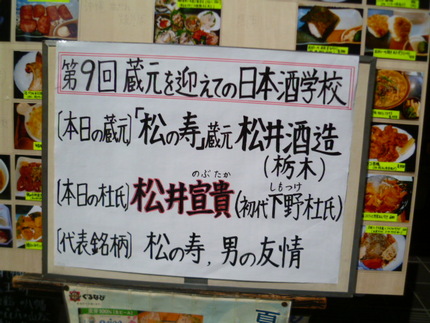 第9回 蔵元を迎えての日本酒学校
〔本日の蔵元〕「松の寿」蔵元 松井酒造
(栃木)
のぶたか しもつけ
〔本日の杜氏〕松井宣貴(初代下野杜氏)
〔代表銘柄〕 松の寿, 男の友情
ぐるなび
夏